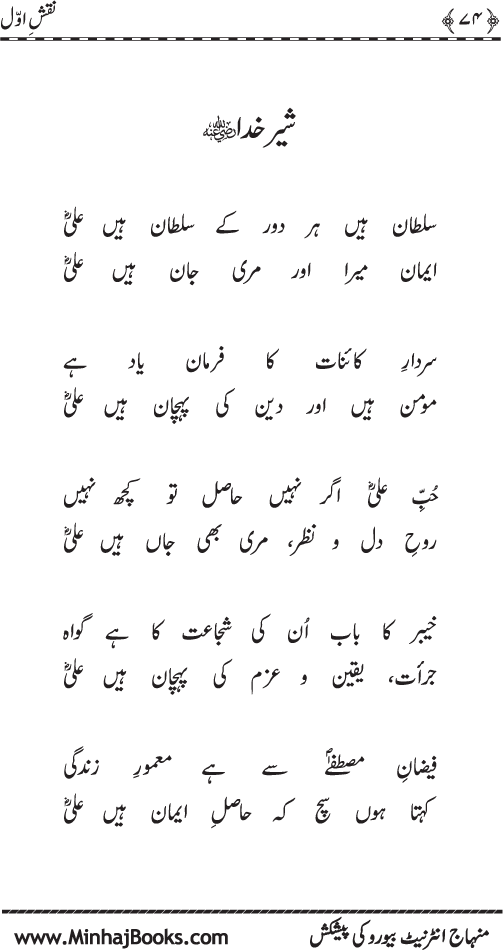 ﴿۷۴﴾ نقشِ اوّل
شیرِ خدا رضی اللہ عنہ
سلطان ہیں ہر دور کے سلطان ہیں علیؓ
ایمان میرا اور مری جان ہیں علیؓ
سردارِ کائنات کا فرمان یاد ہے
مؤمن ہیں اور دین کی پہچان ہیں علیؓ
حُبِّ علیؓ اگر نہیں حاصل تو کچھ نہیں
روحِ دل و نظر، مری بھی جاں ہیں علیؓ
خیبر کا باب اُن کی شجاعت کا ہے گواہ
جرأت، یقین و عزم کی پہچان ہیں علیؓ
فیضانِ مصطفیٰؐ سے ہے معمورِ زندگی
کہتا ہوں سچ کہ حاصلِ ایمان ہیں علیؓ
منہاج انٹرنیٹ بیورو کی پیشکش www.MinhajBooks.com